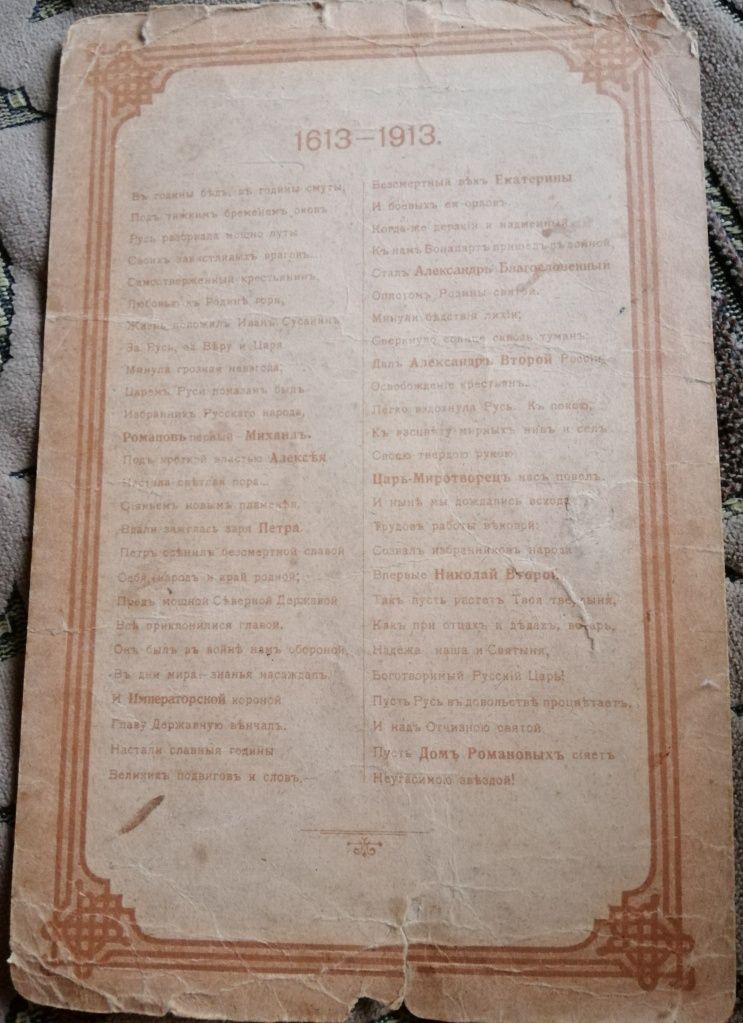 1613—1913.
Въ годины бѣдъ, въ годины смуты,
Подъ тяжкимъ бременемъ оковъ
Русь разбивала мощно путы
Своихъ завистливыхъ враговъ...
Самоотверженный крестьянинъ
Любовью къ Родинѣ горя,
Жизнь положилъ Иванъ Сусанинъ
За Русь, за Вѣру и Царя
Минула грозная невзгода;
Царемъ Руси помазанъ былъ
Избранникъ Русскаго народа,
Романовъ первый Михаилъ.
Подъ кроткой властью Алексѣя
Настала свѣтлая пора...
Сіяньемъ новымъ пламенѣя,
Вдали зажглась заря Петра.
Петръ осѣнилъ безсмертной славой
Себя, народъ и край родной;
Предъ мощной Сѣверной Державой
Всѣ приклонилися главой.
Онъ былъ въ войнѣ намъ обороной,
Въ дни мира знанья насаждалъ
И Императорской короной
Главу Державную вѣнчалъ.
Настали славныя годины
Великихъ подвиговъ и словъ,—
Безсмертный вѣкъ Екатерины
И боевыхъ ея орловъ.
Когда-же дерзкій и надменный
Къ намъ Бонапартъ пришелъ съ войной,
Сталъ Александръ Благословенный
Оплотомъ Родины святой.
Минули бѣдствія лихія;
Сверкнуло солнце сквозь туманъ;
Далъ Александръ Второй Россіи
Освобожденіе крестьянъ...
Легко вздохнула Русь. Къ покою,
Къ расцвѣту мирныхъ нивъ и селъ
Своею твердою рукою
Царь-Миротворецъ насъ повелъ.
И нынѣ мы дождались всхода
Трудовъ работы вѣковой:
Созвалъ избранниковъ народа
Впервые Николай Второй.
Такъ пусть растетъ Твоя твердыня,
Какъ при отцахъ и дѣдахъ, встарь,
Надежа наша и Святыня,
Боготворимый Русскій Царь!
Пусть Русь въ довольствѣ процвѣтаетъ,
И надъ Отчизною святой
Пусть Домъ Романовыхъ сіяетъ
Неугасимою звѣздой!